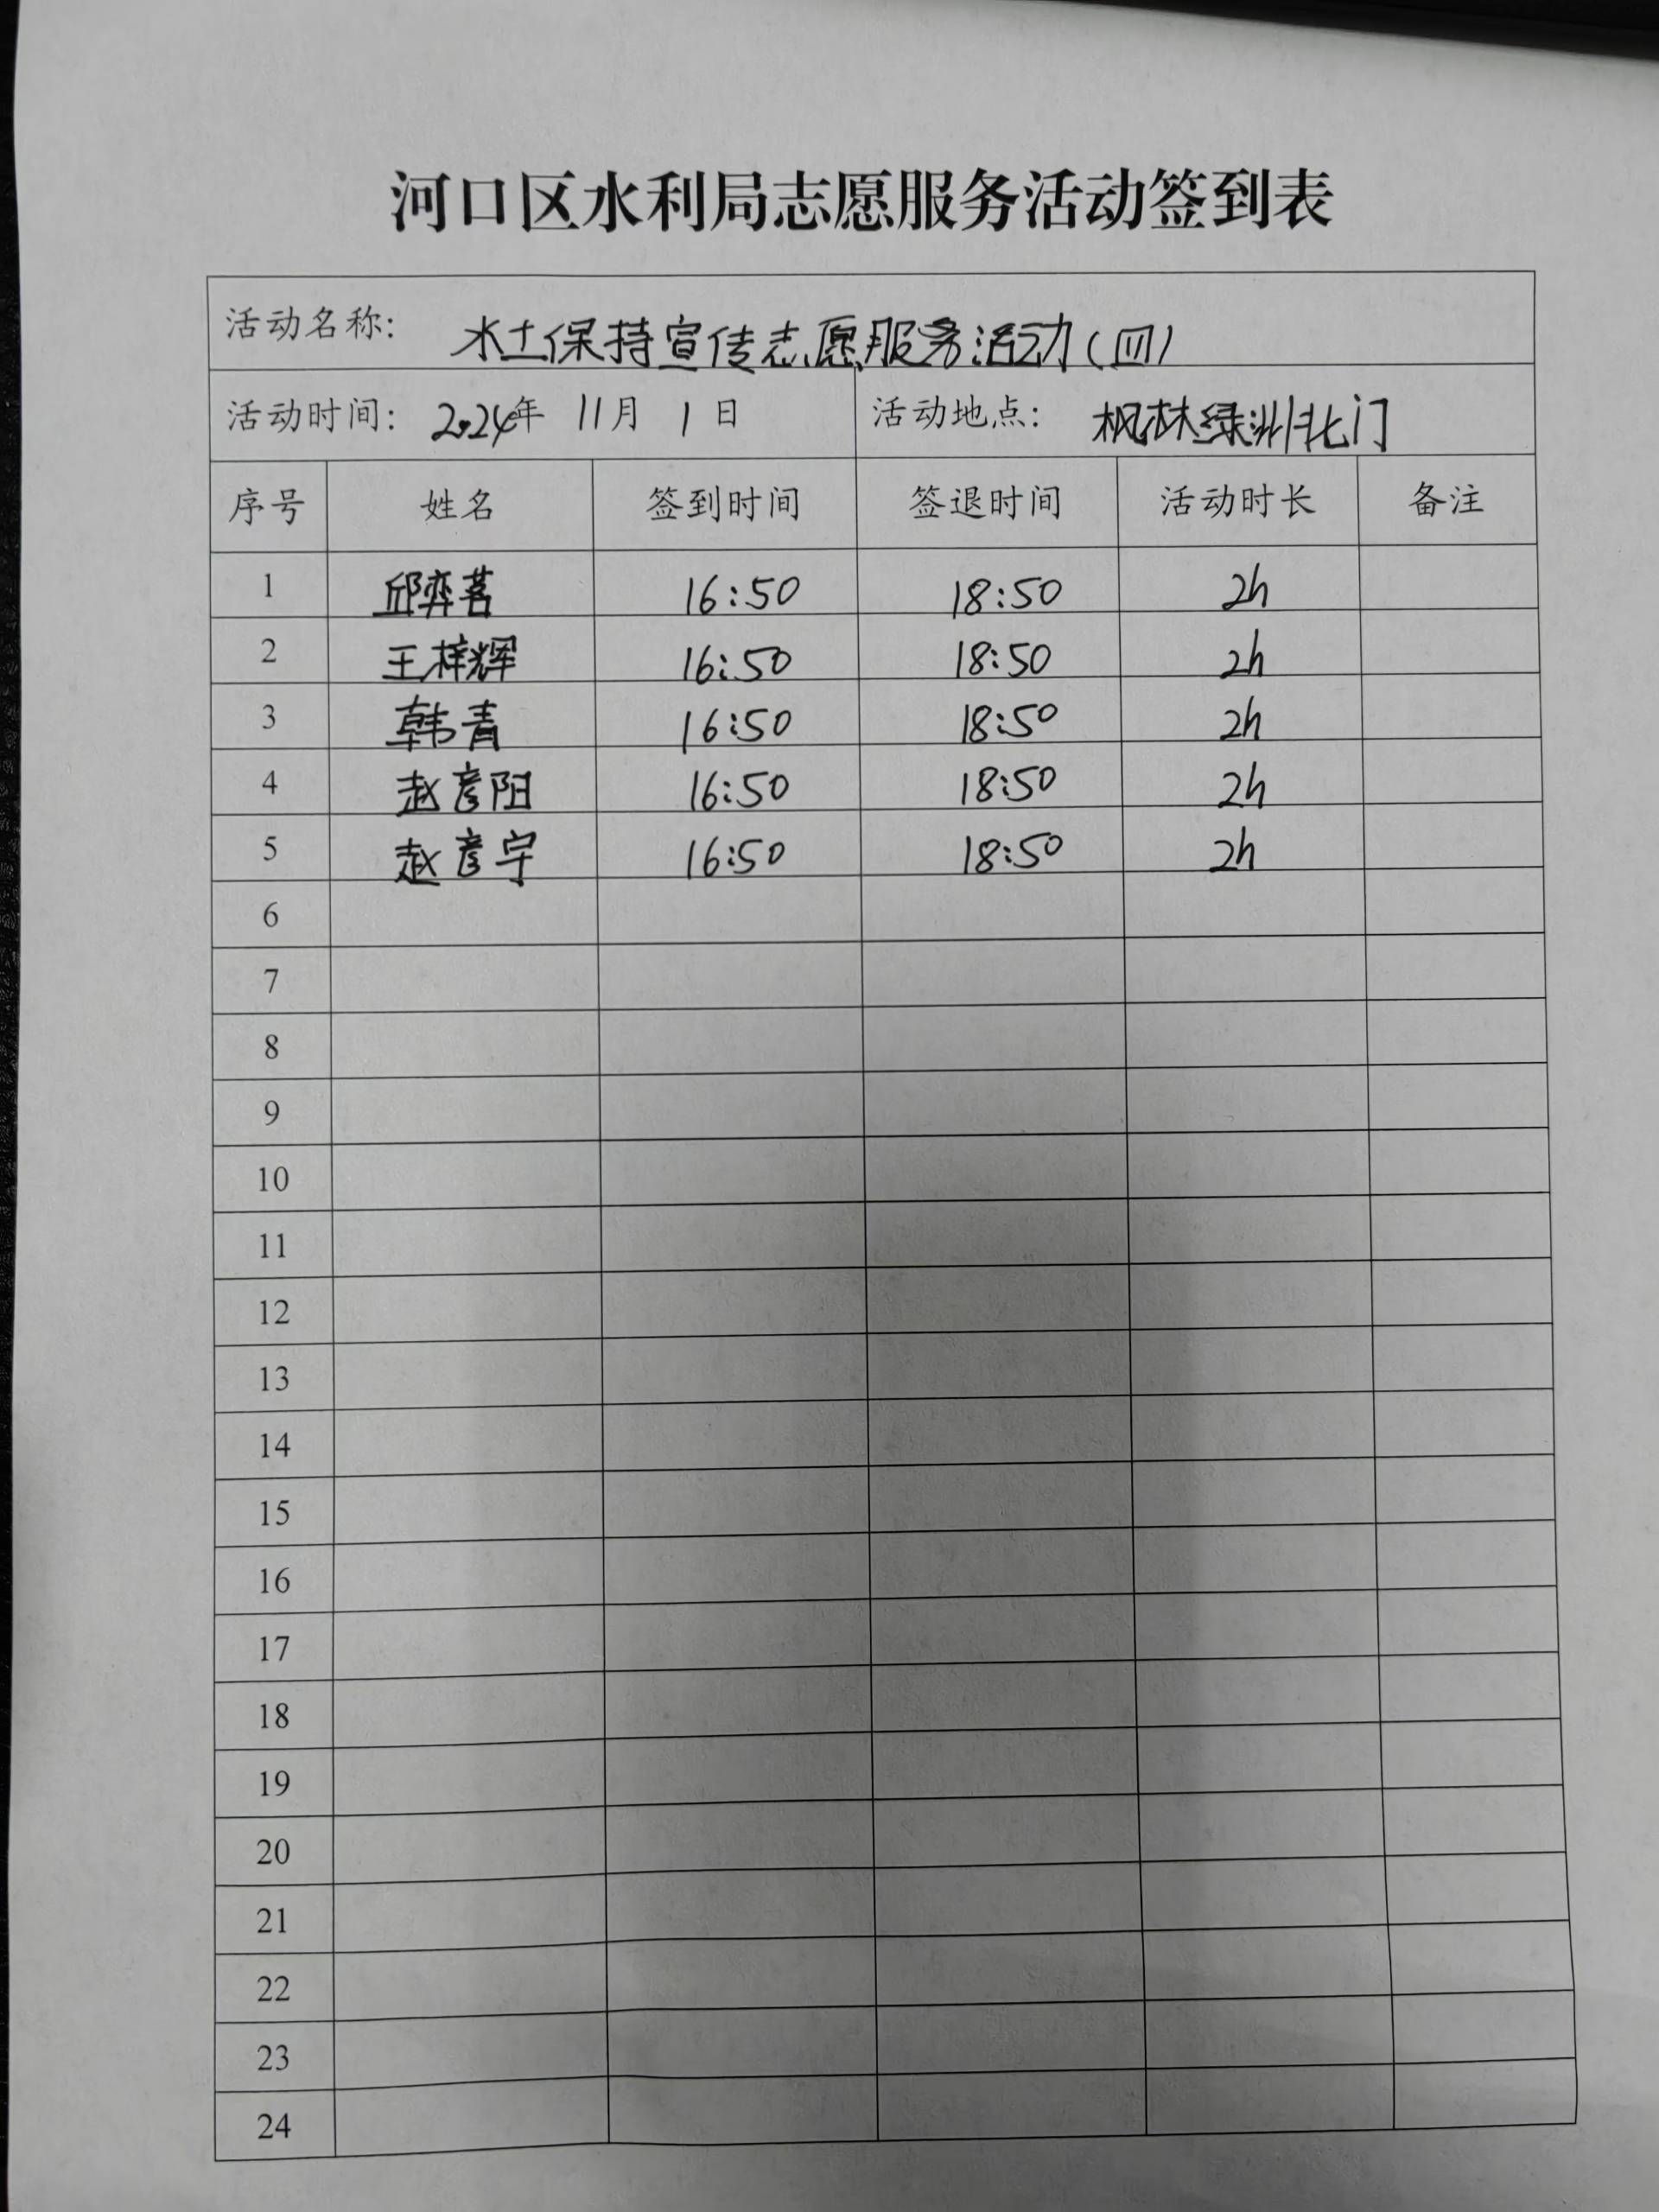 河口区水利局志愿服务活动签到表
活动名称: 水土保持宣传志愿服务活动(四)
活动时间: 2024年 11月 1日 活动地点: 枫林绿洲北门
序号 姓名 签到时间 签退时间 活动时长 备注
1 邱弈茗 16:50 18:50 2h
2 王梓辉 16:50 18:50 2h
3 韩青 16:50 18:50 2h
4 赵彦阳 16:50 18:50 2h
5 赵彦宇 16:50 18:50 2h
6
7
8
9
10
11
12
13
14
15
16
17
18
19
20
21
22
23
24